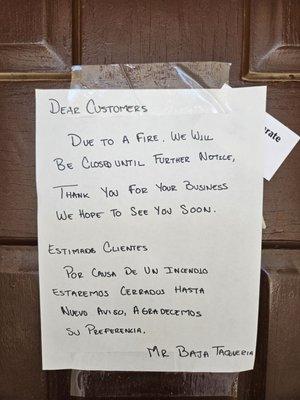 Dear Customers
Due to a Fire. We Will
Be Closed until Further Notice,
Thank You For Your Business
We Hope To See You Soon.
Estimado Clientes
Por Causa De Un Incendio
Estaremos Cerrados Hasta
Nuevo Aviso, Agradecemos
Su Preferencia.
Mr Baja Taqueria